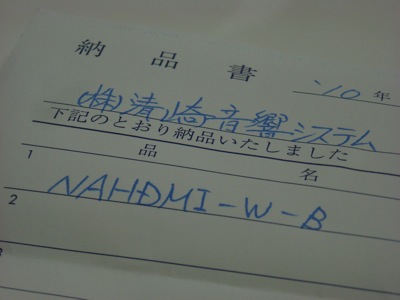 納品書
'10年
(株)清崎音響システム
下記のとおり納品いたしました
品名
1
NAHDMI-W-B
2